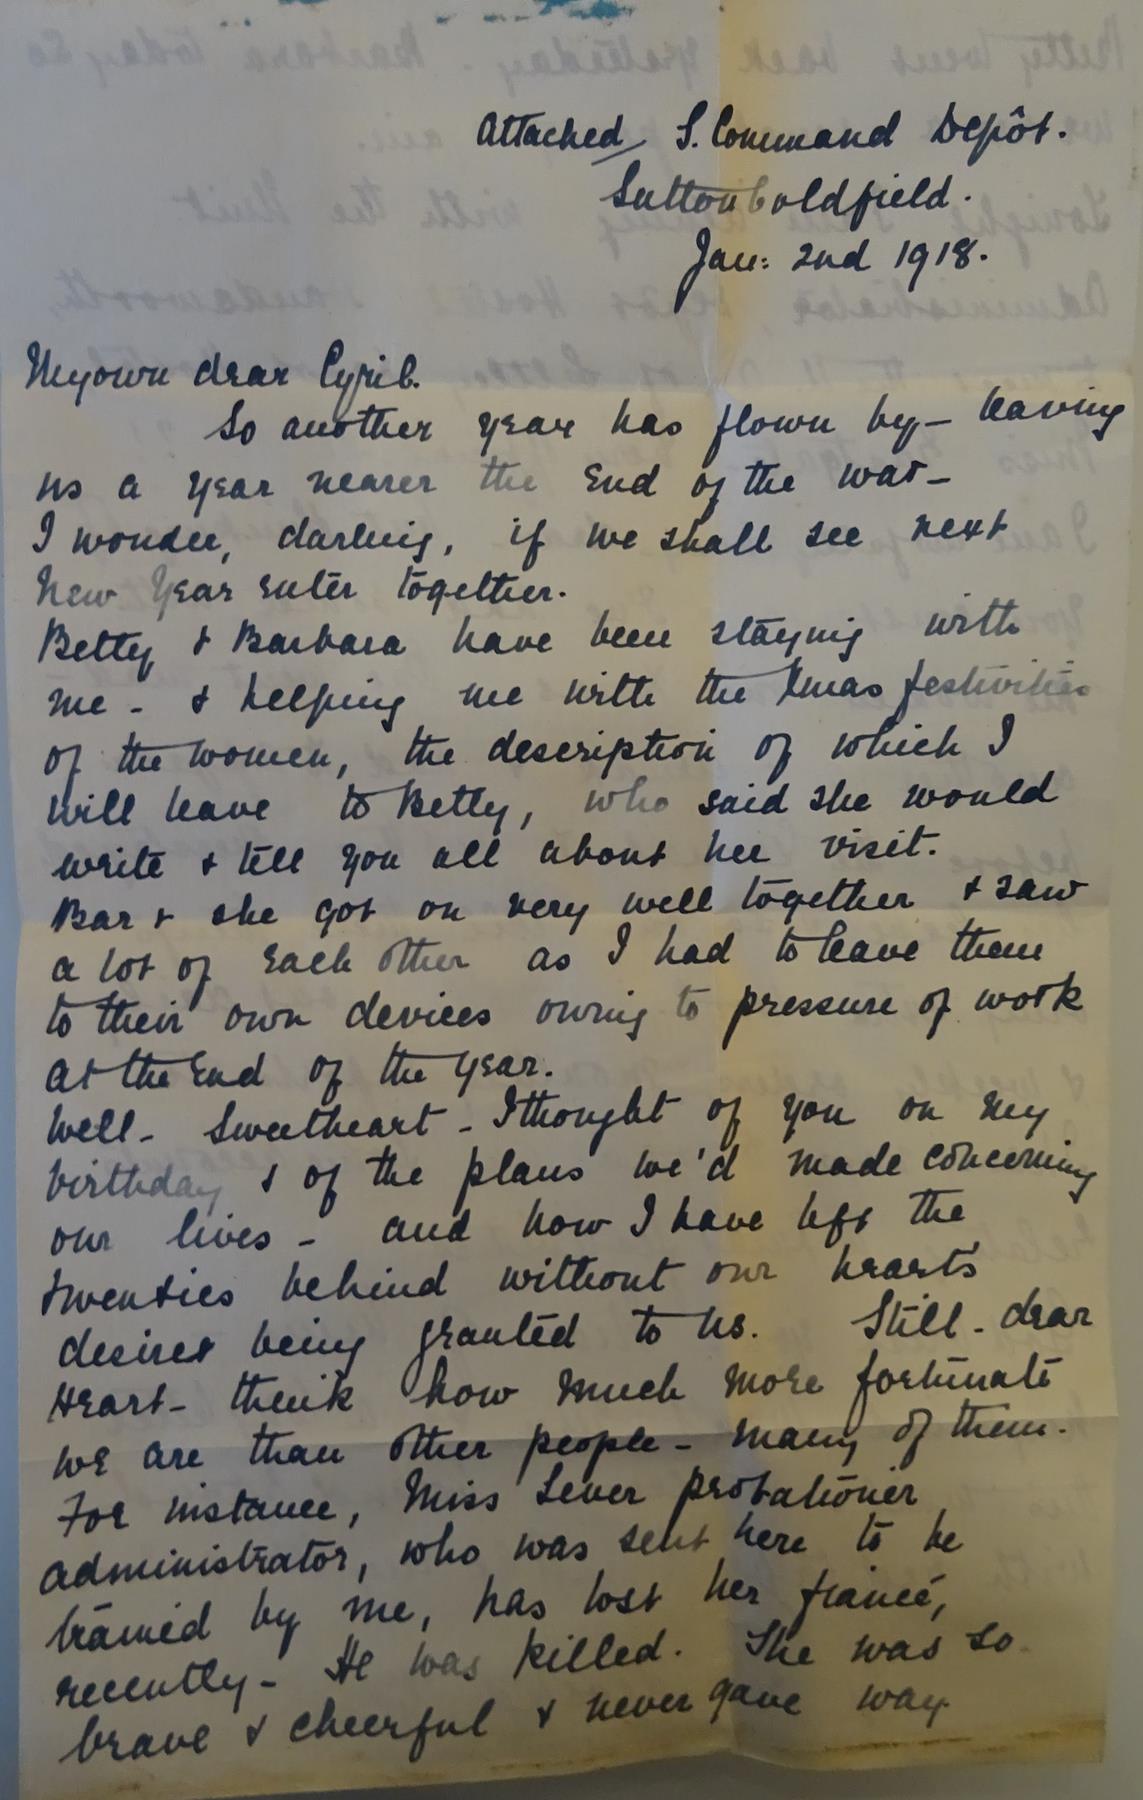 Attached S. Command Depôt.
Sutton Coldfield.
Jan: 2nd 1918.
My own dear Cyril.
So another year has flown by - leaving
us a year nearer the end of the war -
I wonder, darling, if we shall see next
New Year enter together.
Betty & Barbara have been staying with
me - & helping me with the Xmas festivities
of the women, the description of which I
will leave to Betty, who said she would
write & tell you all about her visit.
Bar & she got on very well together & saw
a lot of each other as I had to leave them
to their own devices owing to pressure of work
at the end of the year.
Well - Sweetheart - I thought of you on my
birthday & of the plans we'd made concerning
our lives - and how I have left the
twenties behind without our hearts'
desires being granted to us. Still - dear
Heart - think how much more fortunate
we are than other people - many of them.
For instance, Miss Lever probationer
administrator, who was sent here to be
trained by me, has lost her fiancé,
recently - He was killed. She was so
brave & cheerful & never gave way